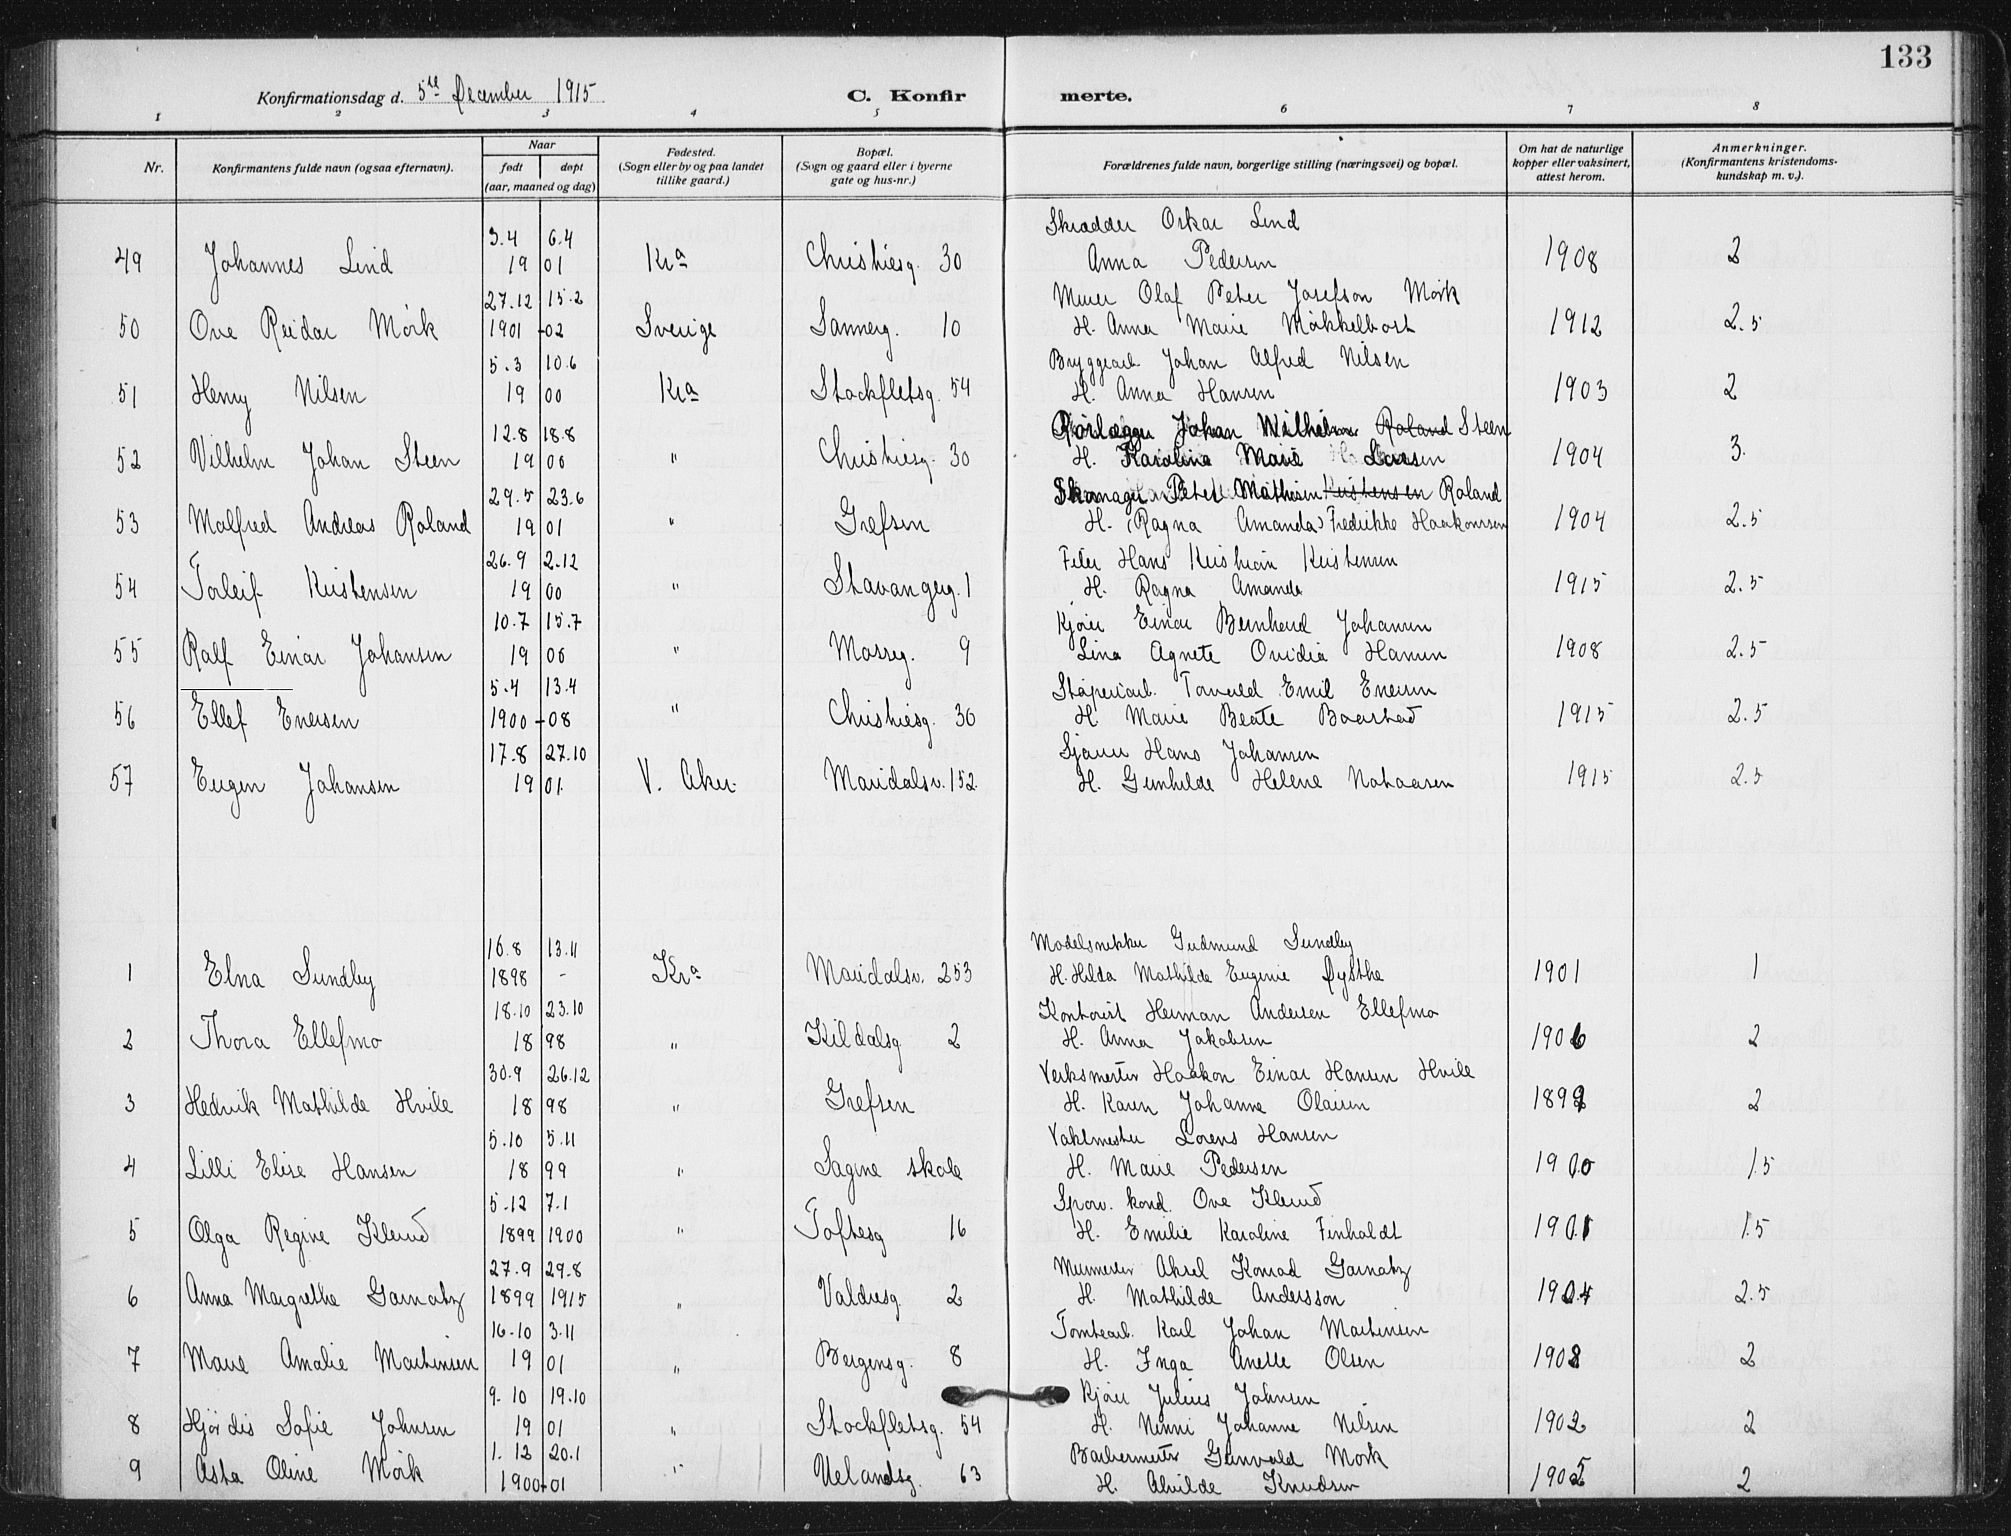 133
Konfirmationsdag d. 5te December 1915 C. Konfirmerte.
1 2 3 4 5 6 7 8
Nr. Konfirmantens fulde navn (ogsaa efternavn). Naar født døpt (aar, maaned og dag) Fødested. (Sogn eller by og paa landet tillike gaard.) Bopæl. (Sogn og gaard eller i byerne gate og hus-nr.) Forældrenes fulde navn, borgerlige stilling (næringsvei) og bopæl. Om hat de naturlige kopper eller vaksinert, attest herom. Anmerkninger. (Konfirmantens kristendomskundskap m. v.).
3.4 6.4 Skrædder Oskar Lind
49 Johannes Lind 19 01 Kra Christiesg. 30 Anna Pedersen 1908 2
27.12 15.2 Murer Olaf Peter Josefson Mörk
50 Ove Reidar Mörk 1901 -02 Sverige Sannerg. 10 H. Anna Marie 1912 2.5
5.3 10.6 Bryggearb. Johan Alfred Nilsen
51 Henry Nilsen 19 00 Kra Stockfletsg. 54 H. Anna Hansen 1903 2
12.8 18.8 Rörlægger Johan Wilhelm Roland Steen
52 Vilhelm Johan Steen 19 00 " Christiesg. 30 H. Karoline Marie Larsen 1904 3.
29.5 23.6 Skomager Peter Mathisen Kristensen Roland
53 Malfred Andreas Roland 19 01 " Grefsen H. (Ragna Amanda) Fredrikke Haakonssen 1904 2.5
26.9 2.12 Filer Hans Kristian Kristensen
54 Torleif Kristensen 19 00 " Stavangerg. 1 H. Ragna Amanda 1915 2.5
10.7 15.7 Kjører Einar Bernhard Johansen
55 Ralf Einar Johansen 19 00 " Mosseg. 9 Lina Agnete Ovidia Hansen 1908 2.5
5.4 13.4 Støperiarb. Torvald Emil Enersen
56 Ellef Enersen 1900 -08 " Christiesg. 36 H. Marie Beate Baarstad 1915 2.5
17.8 27.10 Sjauer Hans Johansen
57 Eugen Johansen 19 01. V. Aker. Maridalsv. 152. H. Gunhilde Helene 1915 2.5
16.8 13.11 Modelsnekker Gudmund Sundby
1 Elna Sundby 1898 - Kra Maridalsv. 253 H. Hilda Mathilde Eugenie Øysthe 1901 1
18.10 23.10 Kontorist Herman Andersen Ellefmo
2 Thora Ellefmo 18 98 " Kildalsg 2 H. Anna Jakobsen 1906 2
30.9 26.12 Verksmester Haakon Einar Hansen Hvile
3 Hedvik Mathilde Hvile 18 98 " Grefsen H. Karen Johanne Olaisen 2
5.10 5.11 Vaktmester Lorens Hansen
4 Lilli Elise Hansen 18 99 " Sagene skole H. Marie Pedersen 1900 1.5
5.12 7.1 Sporv. kond. Ove Klerud
5 Olga Regine Klerud 1899 1900 " Toftesg 16 H. Emilie Karoline Finholdt 1901 1.5
27.9 29.8 Murmester Aksel Konrad Garnatz
6 Anna Margrethe Garnatz 1899 1915 " Valdresg. 2 H. Mathilde Andersson 1904 2.5
16.10 3.11 Tomtearb. Karl Johan Martinsen
7 Marie Amalie Martinsen 19 01 " Bergensg. 8 H. Inga Anette Olsen 1902 2
9.10 19.10 Kjører Julius Johnsen
8 Hjørdis Sofie Johnsen 19 01 " Stockfletsg. 54 H. Ninni Johanne Nilsen 1902 2
1.12 20.1 Barbermester Gunvald Mörk
9 Asta Oline Mörk 1900 -01 " Uelandsg. 63 H. Alvilde Knudsen 1905 2